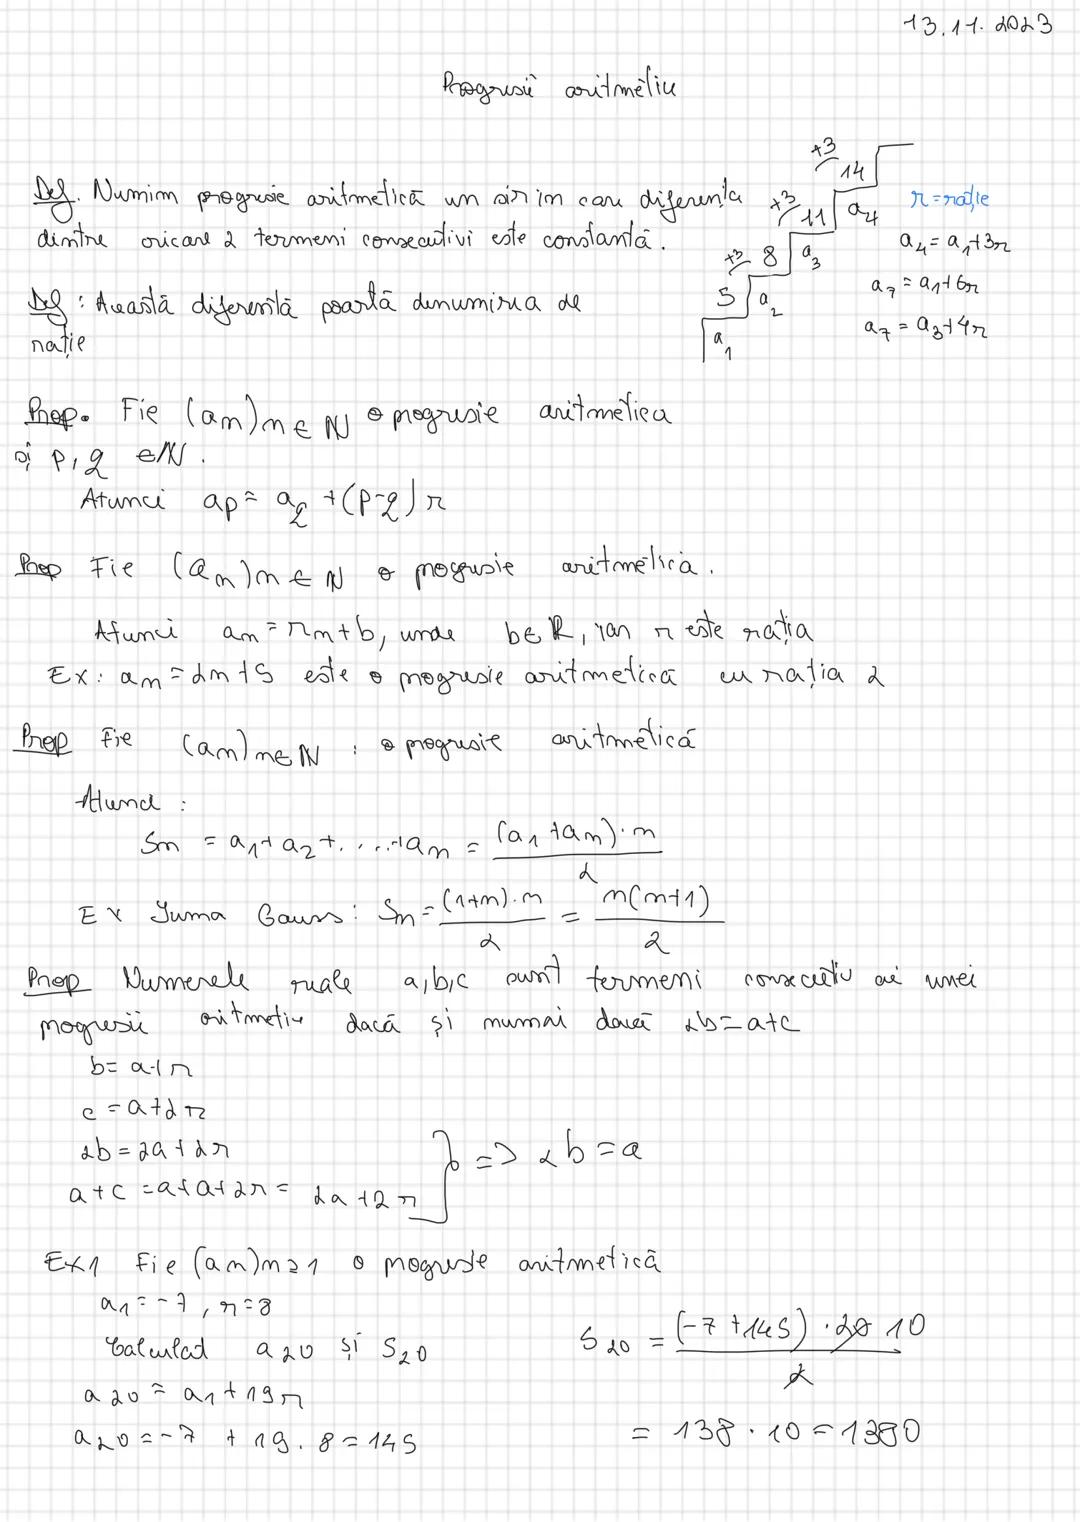 13.11.2023
Progresii aritmetice
Def. Numim progresie aritmetică un șir în care diferența
dintre oricare 2 termeni consecutivi este constantă.
Def: Această diferență poartă denumirea de
rație
+3 14
+3 11 a₄
+3 8 a₃
5 a₂
a₁
r = rație
a₄ = a₁+3r
a₇ = a₁+6r
a₇ = a₃+4r
Prop. Fie (an)n∈ℕ o progresie aritmetica
și p,q ∈ℕ.
Atunci ap = aq +(p-q)r
Prop Fie (an)n∈ℕ o progresie aritmetică.
Atunci an = rn+b, unde b∈ℝ, iar r este rația
Ex: an = 2n+5 este o progresie aritmetică cu rația 2
Prop Fie (an)n∈ℕ : o progresie aritmetică
Atunci :
Sn = a₁+a₂+.....+an = (a₁+an)·n / 2
Ex Suma Gauss: Sn = (1+n)·n / 2 = n(n+1) / 2
Prop Numerele reale a,b,c sunt termeni consecutiv ai unei
progresii aritmetice dacă și numai dacă 2b=a+c
b = a+r
c = a+2r
2b = 2a+2r
a+c = a+a+2r = 2a+2r } => 2b = a
Ex1 Fie (an)n≥1 o progresie aritmetică
a₁ = -7, r=8
Calculad a₂₀ și S₂₀
a₂₀ = a₁+19r
a₂₀ = -7 + 19·8 = 145
S₂₀ = (-7+145)·20 10 / 2
= 138·10 = 1380